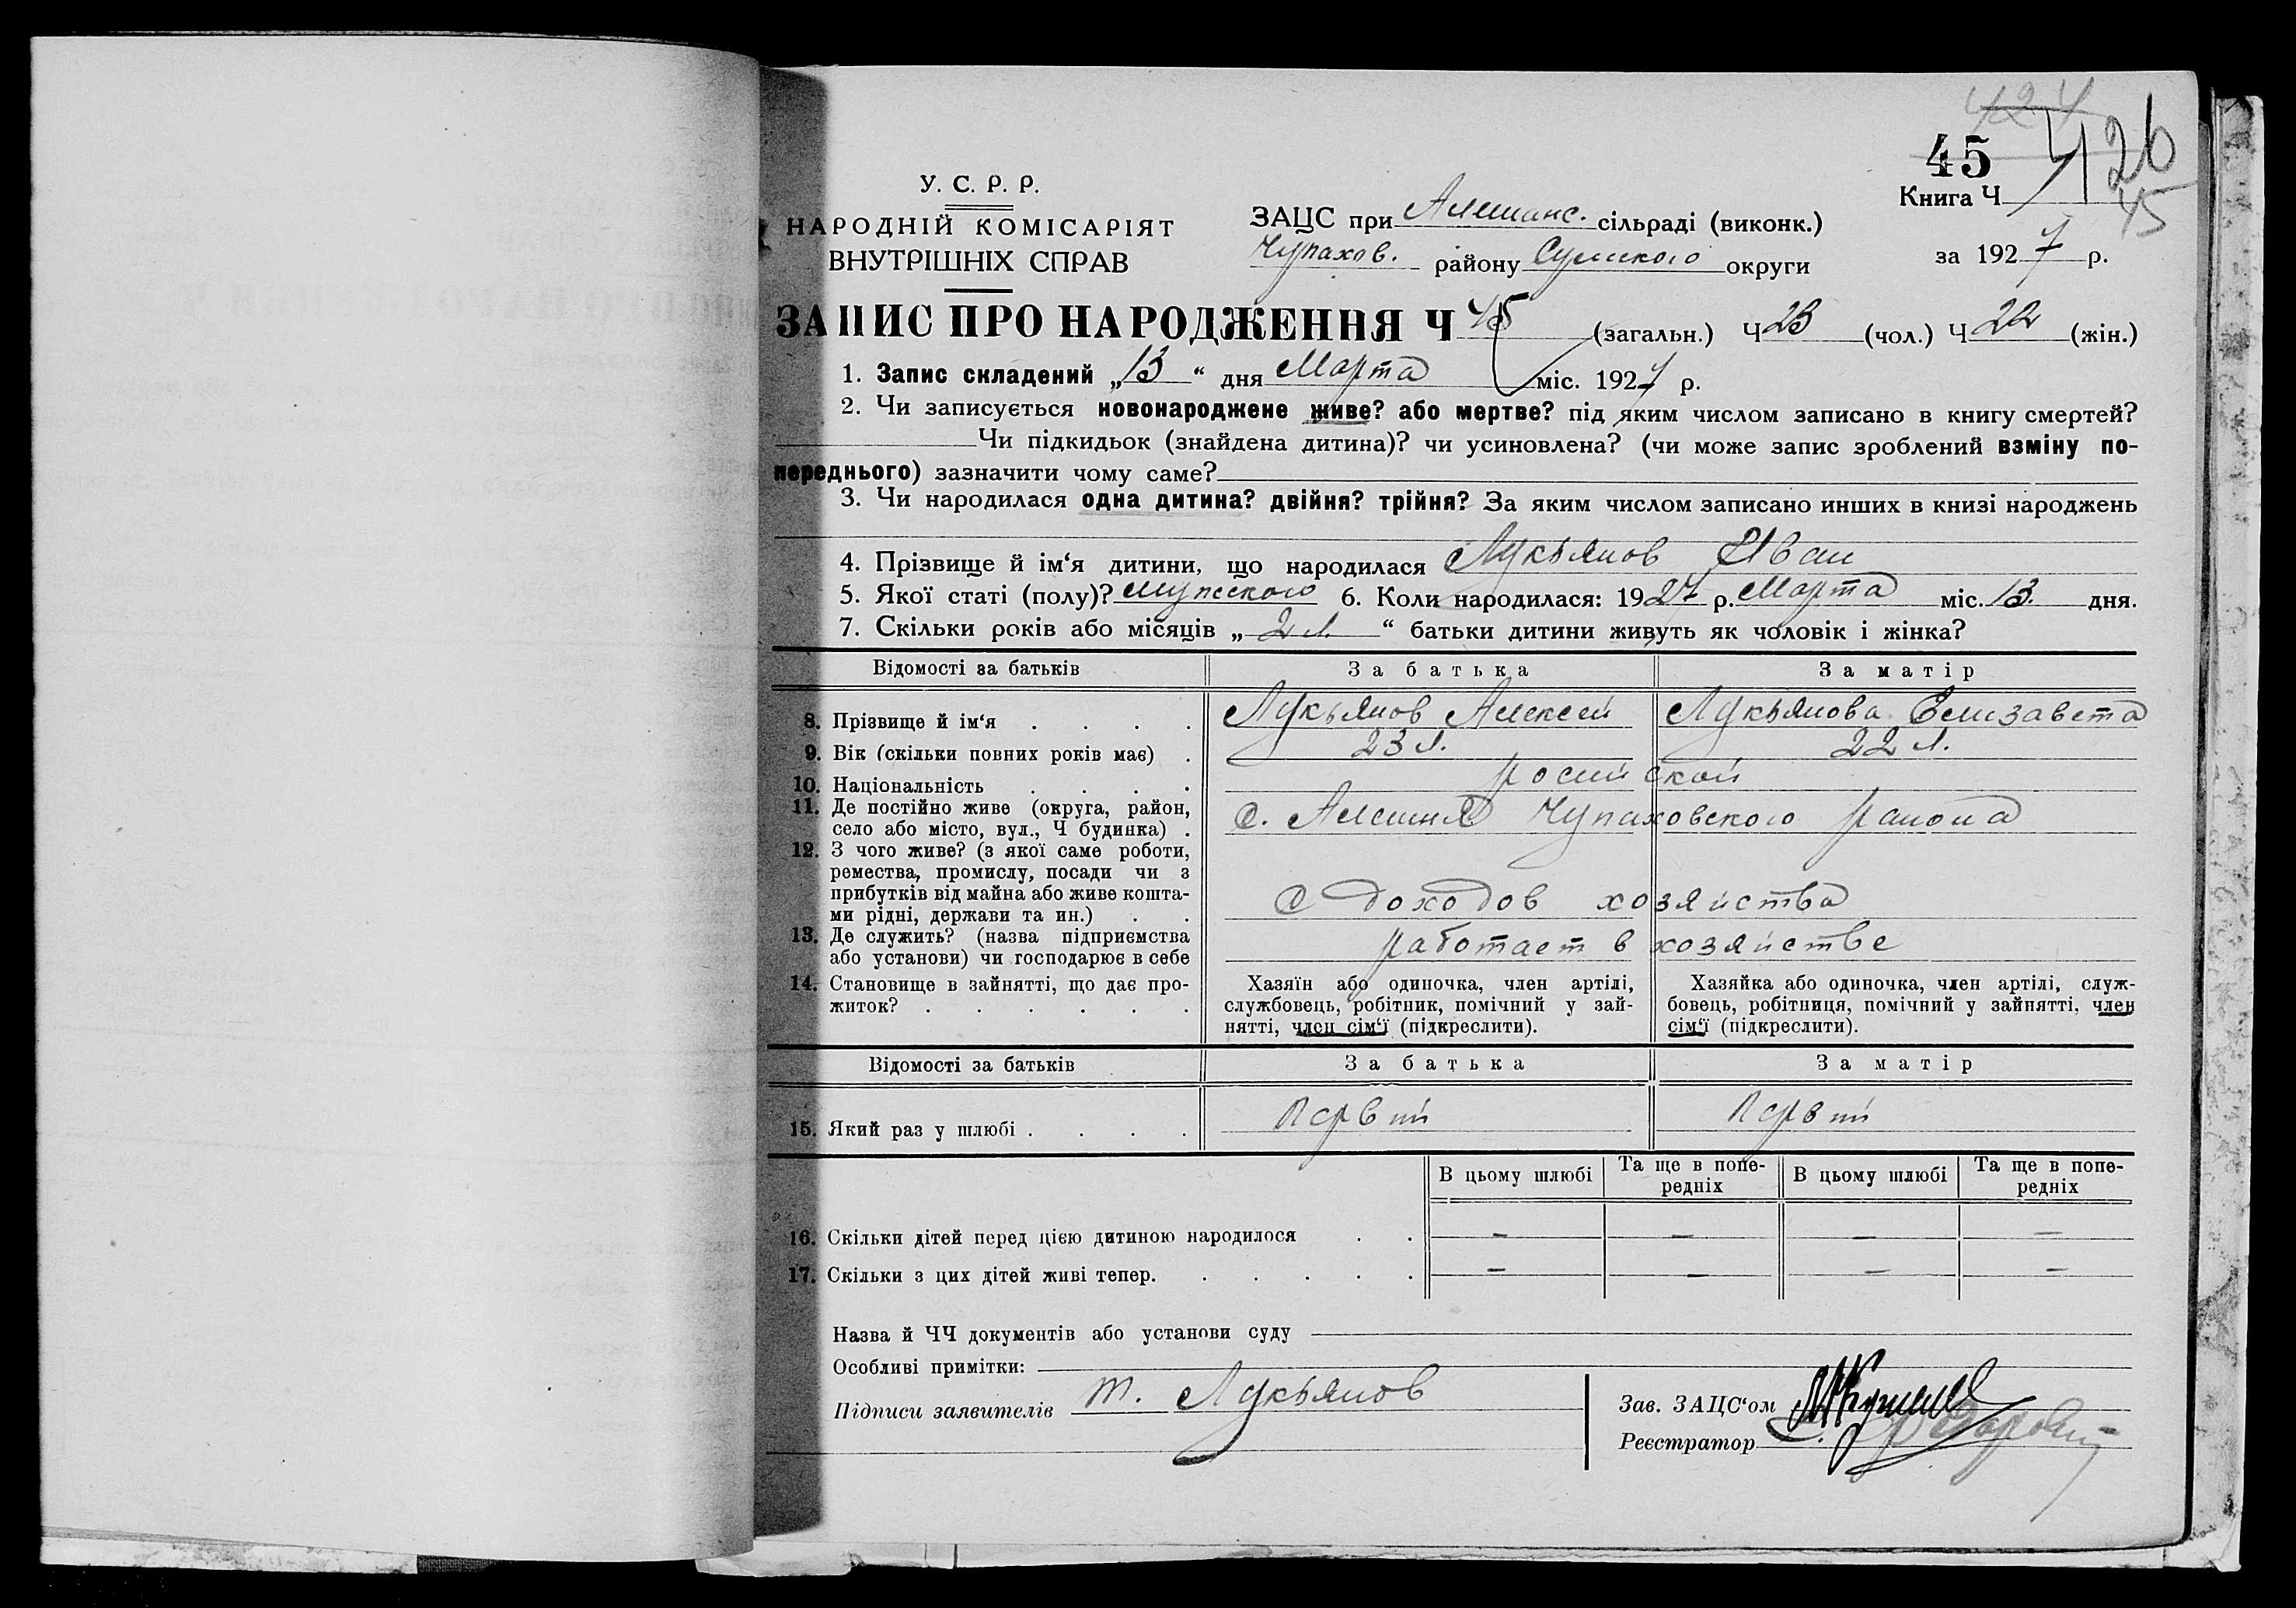 424
45
126
45
У. С. Р. Р.
НАРОДНІЙ КОМІСАРІЯТ
ВНУТРІШНІХ СПРАВ
ЗАЦС при Алешанс. сільраді (виконк.)
Чупахов. району Сумского округи
Книга Ч
за 1927 р.
ЗАПИС ПРО НАРОДЖЕННЯ Ч 45 (загальн.) Ч 23 (чол.) Ч 22 (жін.)
1. Запис складений „13“ дня Марта міс. 1927 р.
2. Чи записується новонароджене живе? або мертве? під яким числом записано в книгу смертей?
Чи підкидьок (знайдена дитина)? чи усиновлена? (чи може запис зроблений взміну по-
переднього) зазначити чому саме?
3. Чи народилася одна дитина? двійня? трійня? За яким числом записано инших в книзі народжень
4. Прізвище й ім‘я дитини, що народилася Лукьянов Иван
5. Якої статі (полу)? мужского 6. Коли народилася: 1927 р. Марта міс. 13. дня.
7. Скільки років або місяців „2 л.“ батьки дитини живуть як чоловік і жінка?
Відомості за батьків За батька За матір
8. Прізвище й ім‘я . . . . Лукьянов Алексей Лукьянова Елизавета
9. Вік (скільки повних років має) . 23 л. 22 л.
10. Національність . . . . росийской
11. Де постійно живе (округа, район,
село або місто, вул., Ч будинка) . с. Алешня Чупаховского района
12. З чого живе? (з якої саме роботи,
ремества, промислу, посади чи з
прибутків від майна або живе кошта-
ми рідні, держави та ин.) . . С доходов хозяйства
13. Де служить? (назва підприємства
або установи) чи господарює в себе работает в хозяйстве
14. Становище в зайнятті, що дає про-
житок? . . . . . .
Хазяїн або одиночка, член артілі,
службовець, робітник, помічний у зай-
нятті, член сім‘ї (підкреслити).
Хазяйка або одиночка, член артілі, служ-
бовець, робітниця, помічний у зайнятті, член
сім‘ї (підкреслити).
Відомості за батьків За батька За матір
15. Який раз у шлюбі . . . . Первый Первый
В цьому шлюбі Та ще в попе- В цьому шлюбі Та ще в попе-
редніх редніх
16. Скільки дітей перед цією дитиною народилося . . — — — —
17. Скільки з цих дітей живі тепер. . . . . . — — — —
Назва й ЧЧ документів або установи суду
Особливі примітки:
Підписи заявителів т. Лукьянов
Зав. ЗАЦС‘ом
Реєстратор